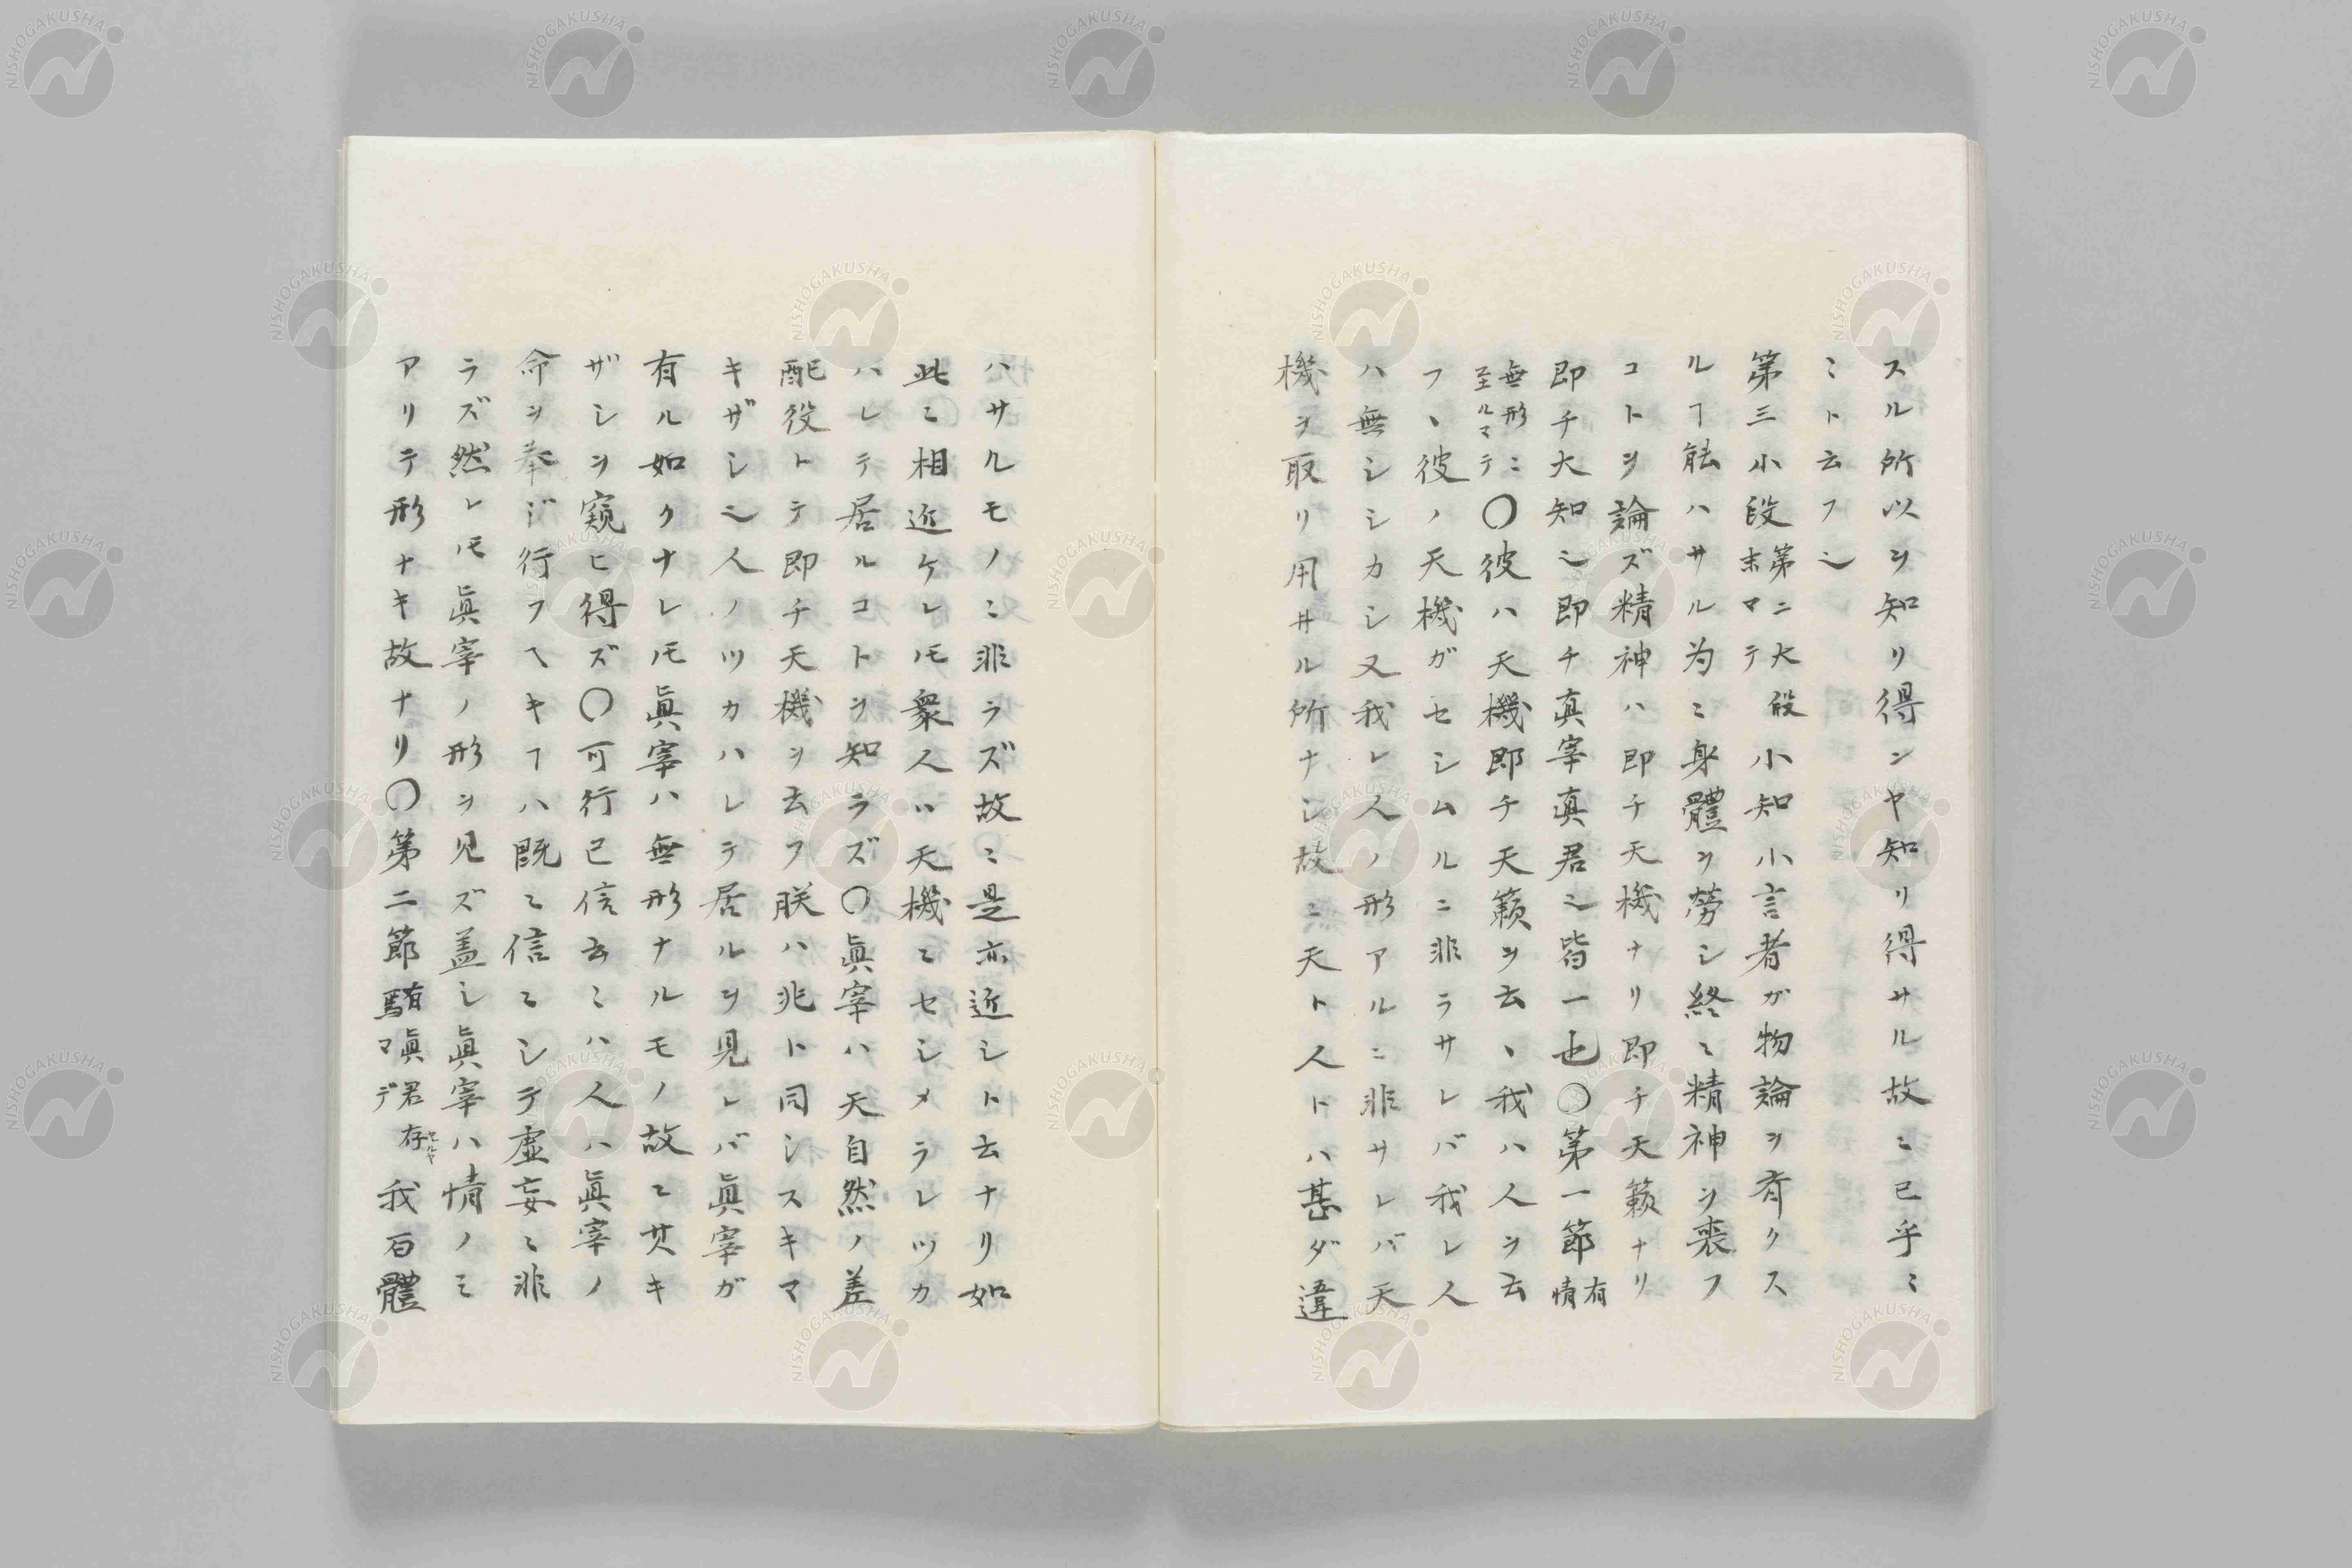 スル所以ヲ知リ得ンヤ知リ得サル故ニ已乎ミ
ミト云フ也
第三小段第二大段末マテ小知小言者ガ物論ヲ齊クス
ルヿ能ハサル為ニ身體ヲ勞シ終ニ精神ヲ喪フ
コトヲ論ズ精神ハ即チ天機ナリ即チ天籟ナリ
即チ大知也即チ真宰真君ミ也皆一也〇第一節有情
無形ニ至ルマテ〇彼ハ天機即チ天籟ヲ云、我ハ人ヲ云
フ、彼ノ天機ガセシムルニ非ラサレバ我レ人
ハ無シシカシ又我レ人ノ形アルニ非サレバ天
機ヲ取リ用井ル所ナシ故ニ天ト人トハ甚ダ違
ハサルモノニ非ラズ故ニ是亦近シト云ナリ如
此ニ相近ケレ𪜈衆人ハ天機ニセシメラレツカ
ハレテ居ルコトヲ知ラズ〇眞宰ハ天自然ノ差
配役トテ即チ天機ヲ云フ朕ハ兆ト同シスキマ
キザシ也人ノツカハレテ居ルヲ見レバ眞宰ガ
有ル如クナレ𪜈眞宰ハ無形ナルモノ故ニ其キ
ザシヲ窺ヒ得ズ〇可行已信云ミハ人ハ眞宰ノ
命ヲ奉ジ行フヘキヿハ既ニ信ニシテ虚妄ニ非
ラズ然レ𪜈眞宰ノ形ヲ見ズ盖シ眞宰ハ情ノミ
アリテ形ナキ故ナリ〇第二節有眞君存焉マデ我百體